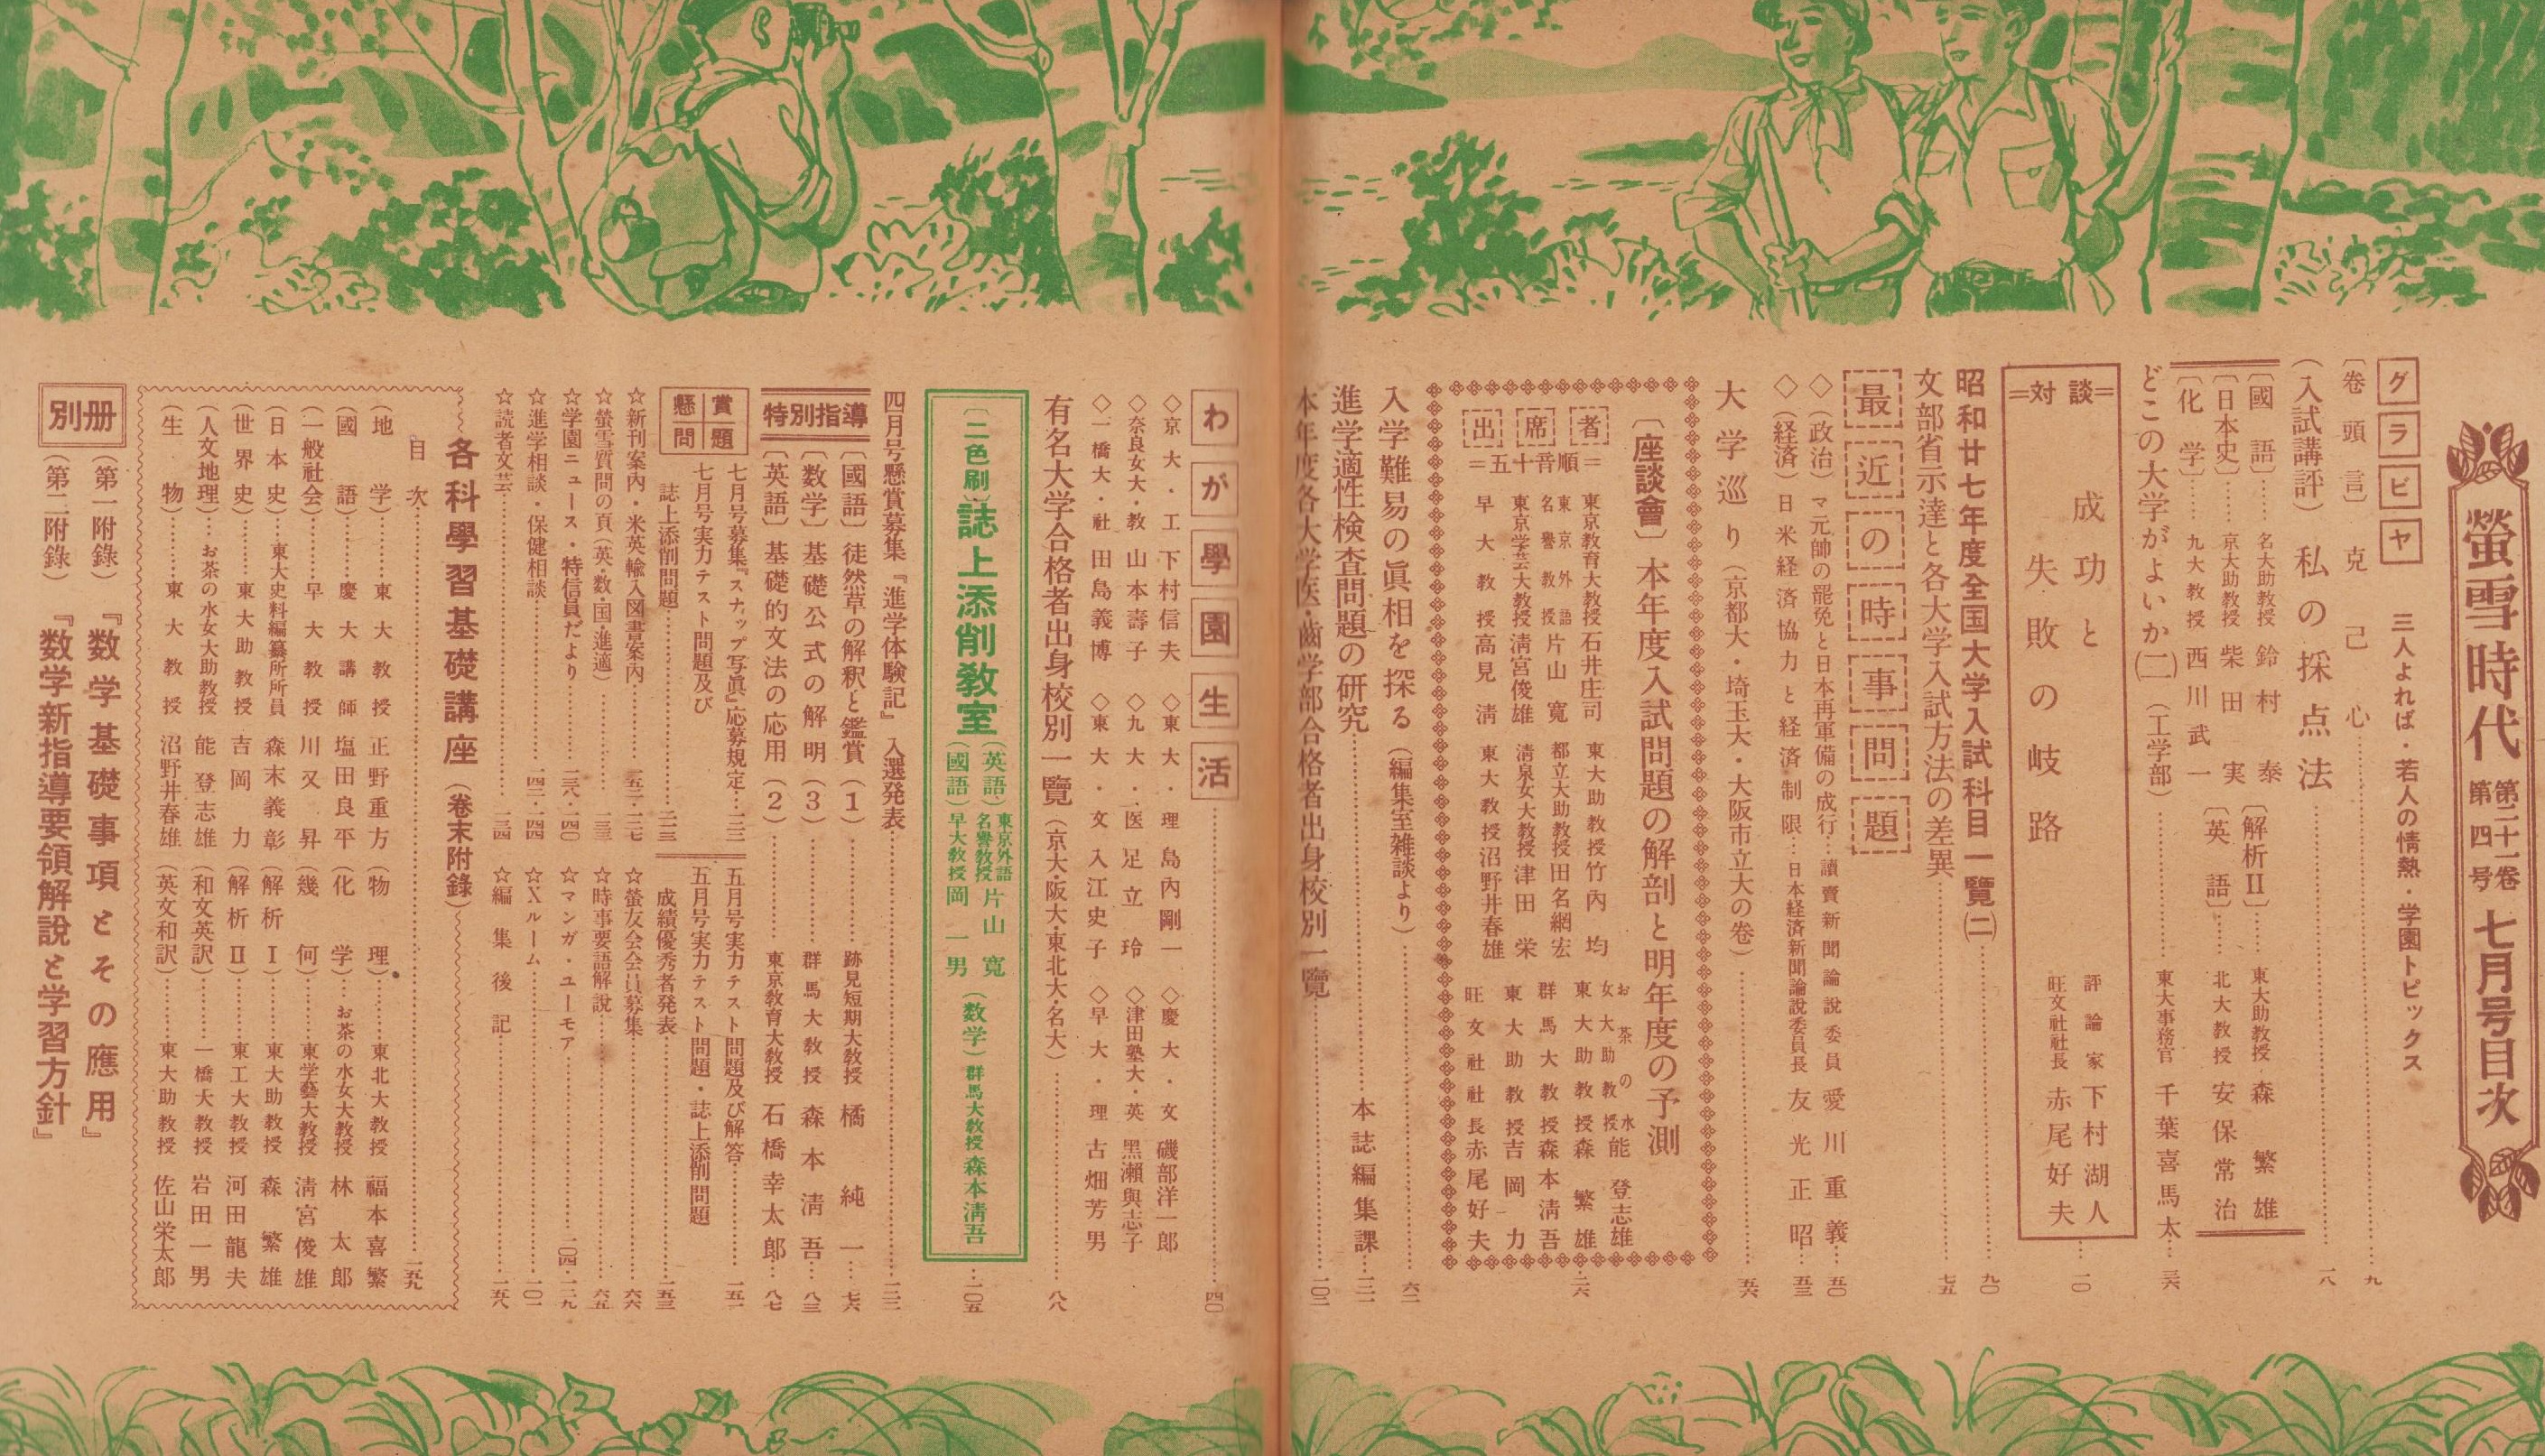 螢雪時代 第二十一卷 第四号 七月号目次
グラビヤ 三人よれば・若人の情熱・学園トピックス
〔巻頭言〕克己心 九
(入試講評) 私の採点法 一八
〔國語〕 名大助教授 鈴村泰
〔日本史〕 京大助教授 柴田実
〔化学〕 九大教授 西川武一
〔解析Ⅱ〕 東大助教授 森繁雄
〔英語〕 北大教授 安保常治
どこの大学がよいか(二)(工学部) 東大事務官 千葉喜馬太 三六
=対談=
成功と
失敗の岐路
評論家 下村湖人
旺文社社長 赤尾好夫 一〇
昭和廿七年度全国大学入試科目一覽(二) 九〇
文部省示達と各大学入試方法の差異 七五
最近の時事問題
◇(政治) マ元帥の罷免と日本再軍備の成行 讀賣新聞論説委員 愛川重義 五〇
◇(経済) 日米経済協力と経済制限 日本経済新聞論説委員長 友光正昭 五三
大学巡り(京都大・埼玉大・大阪市立大の巻) 五六
〔座談會〕本年度入試問題の解剖と明年度の予測 二六
出席者
=五十音順=
東京教育大教授 石井庄司
東京外語名譽教授 片山寛
東京学芸大教授 淸宮俊雄
早大教授 高見淸
東大助教授 竹內均
都立大助教授 田名網宏
淸泉女大教授 津田栄
東大教授 沼野井春雄
お茶の水女大助教授 能登志雄
東大助教授 森繁雄
群馬大教授 森本淸吾
東大助教授 吉岡力
旺文社社長 赤尾好夫
入学難易の眞相を探る(編集室雑談より) 六二
進学適性検査問題の研究 本誌編集課 一二一
本年度各大学医・齒学部合格者出身校別一覽 一〇二
わが學園生活 四〇
◇京大・工 下村信夫
◇東大・理 島內剛一
◇慶大・文 磯部洋一郎
◇奈良女大・教 山本壽子
◇九大・医 足立玲
◇津田塾大・英 黑瀨與志子
◇一橋大・社 田島義博
◇東大・文 入江史子
◇早大・理 古畑芳男
有名大学合格者出身校別一覽(京大・阪大・東北大・名大) 八八
〔二色刷〕誌上添削教室
(英語) 東京外語名譽教授 片山寛
(國語) 早大教授 岡一男
(数学) 群馬大教授 森本淸吾 一〇五
四月号懸賞募集『進学体験記』入選発表 一二二
特別指導
〔國語〕徒然草の解釈と鑑賞(1) 跡見短期大教授 橘純一 七六
〔数学〕基礎公式の解明(3) 群馬大教授 森本淸吾 八三
〔英語〕基礎的文法の応用(2) 東京教育大教授 石橋幸太郎 八七
懸賞問題
七月号募集『スナップ写眞』応募規定
七月号実力テスト問題及び
誌上添削問題
五月号実力テスト問題及び解答 一五一
五月号実力テスト問題・誌上添削問題
成績優秀者発表 一五三
☆新刊案內・米英輸入図書案內
☆螢雪質問の頁(英・数・国・進適)
☆学園ニュース・特信員だより
☆進学相談・保健相談
☆読者文芸
☆螢友会会員募集 六六
☆時事要語解説 六五
☆マンガ・ユーモア 一〇四・一二九
☆Xルーム 一〇一
☆編集後記 一五八
各科學習基礎講座(巻末附錄)
目次 一五九
(地学) 東大教授 正野重方
(國語) 慶大講師 塩田良平
(一般社会) 早大教授 川又昇
(日本史) 東大史料編纂所所員 森末義彰
(世界史) 東大助教授 吉岡力
(人文地理) お茶の水女大助教授 能登志雄
(生物) 東大教授 沼野井春雄
(物理) 東北大教授 福本喜繁
(化学) お茶の水女大教授 林太郎
(幾何) 東学藝大教授 淸宮俊雄
(解析Ⅰ) 東大助教授 森繁雄
(解析Ⅱ) 東工大教授 河田龍夫
(和文英訳) 一橋大教授 岩田一男
(英文和訳) 東大助教授 佐山栄太郎
別册
(第一附錄) 『数学基礎事項とその應用』
(第二附錄) 『数学新指導要領解說と学習方針』